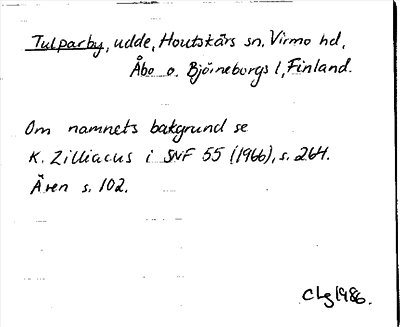 Tulparby, udde, Houtskärs sn, Virmo hd,
Åbo o. Björneborgs l, Finland.
Om namnets bakgrund se
K. Zilliacus i SNF 55 (1966), s. 264.
Även s. 102.
CLg 1986.